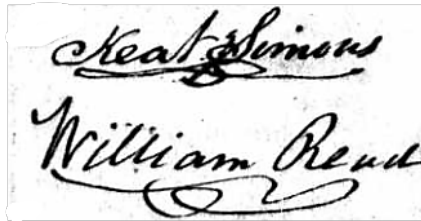 Keat Simons
William Read